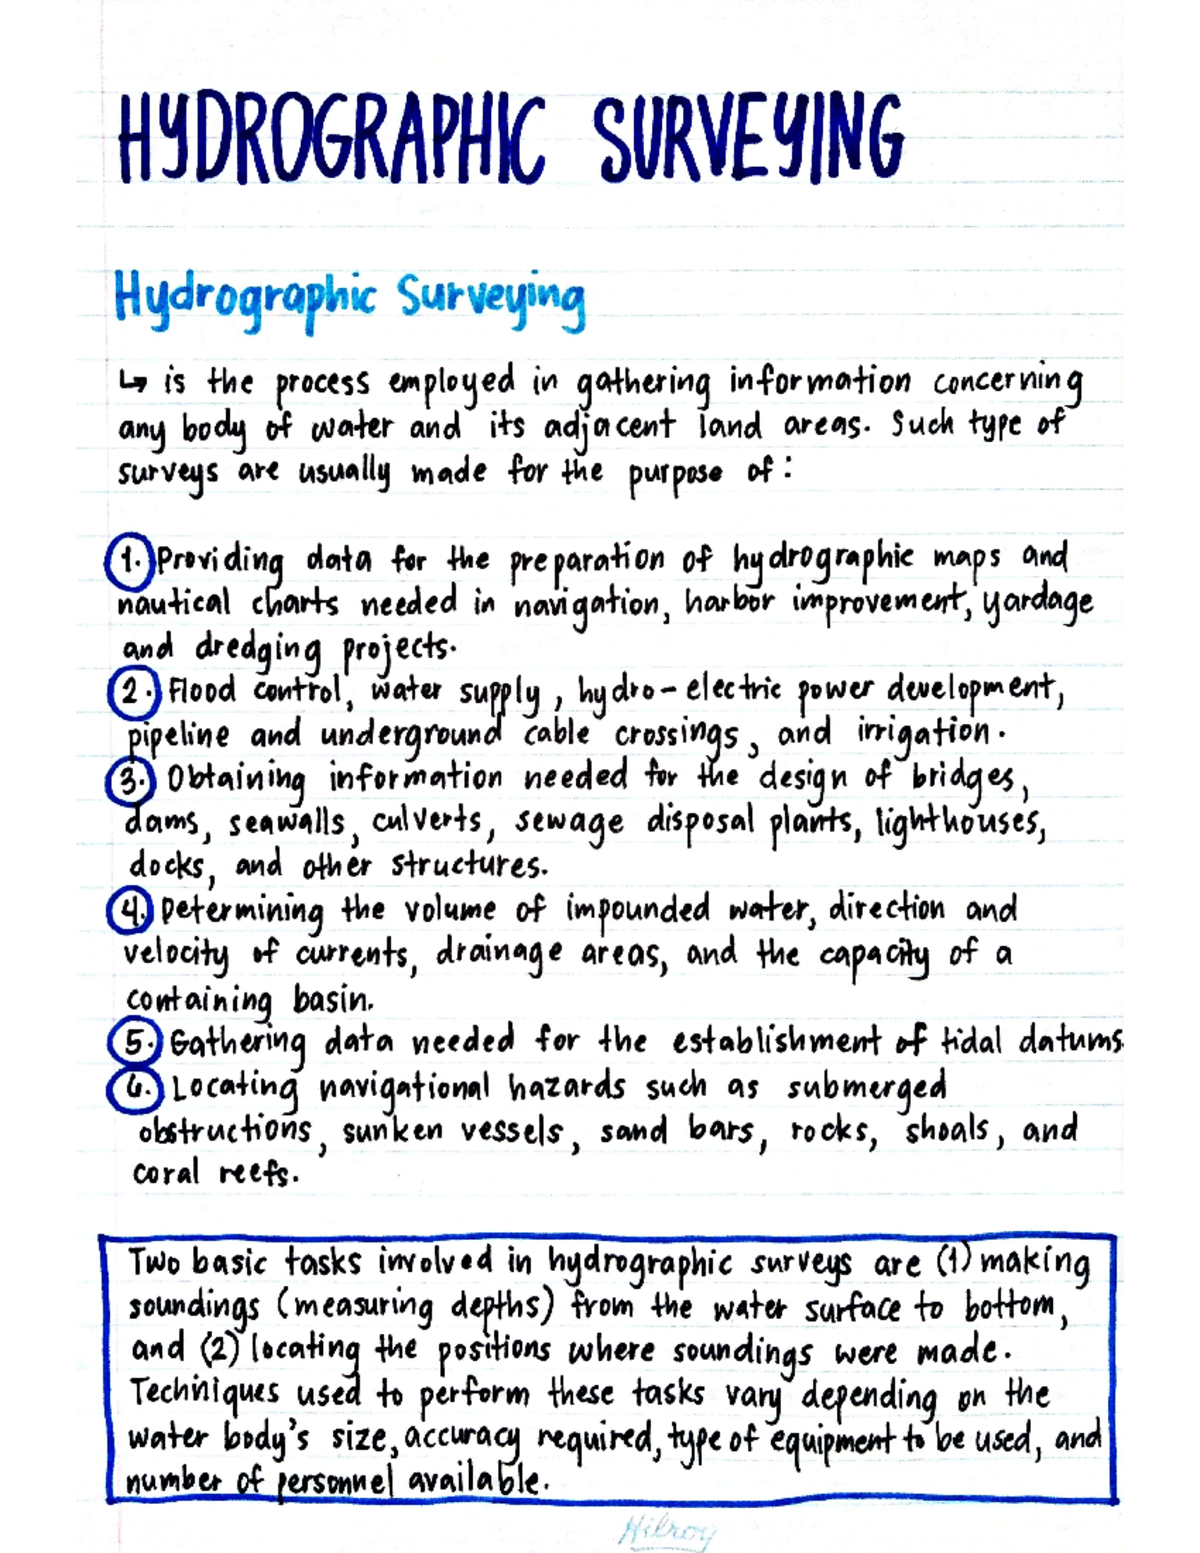 HYDROGRAPHIC SURVEYING
Hydrographic Surveying
↳ is the process employed in gathering information concerning
any body of water and its adjacent land areas. Such type of
surveys are usually made for the purpose of:
1. Providing data for the preparation of hydrographic maps and
nautical charts needed in navigation, harbor improvement, yardage
and dredging projects.
2. Flood control, water supply, hydro-electric power development,
pipeline and underground cable crossings, and irrigation.
3. Obtaining information needed for the design of bridges,
dams, seawalls, culverts, sewage disposal plants, lighthouses,
docks, and other structures.
4. Determining the volume of impounded water, direction and
velocity of currents, drainage areas, and the capacity of a
containing basin.
5. Gathering data needed for the establishment of tidal datums.
6. Locating navigational hazards such as submerged
obstructions, sunken vessels, sand bars, rocks, shoals, and
coral reefs.
Two basic tasks involved in hydrographic surveys are (1) making
soundings (measuring depths) from the water surface to bottom,
and (2) locating the positions where soundings were made.
Techniques used to perform these tasks vary depending on the
water body's size, accuracy required, type of equipment to be used, and
number of personnel available.
Hilroy